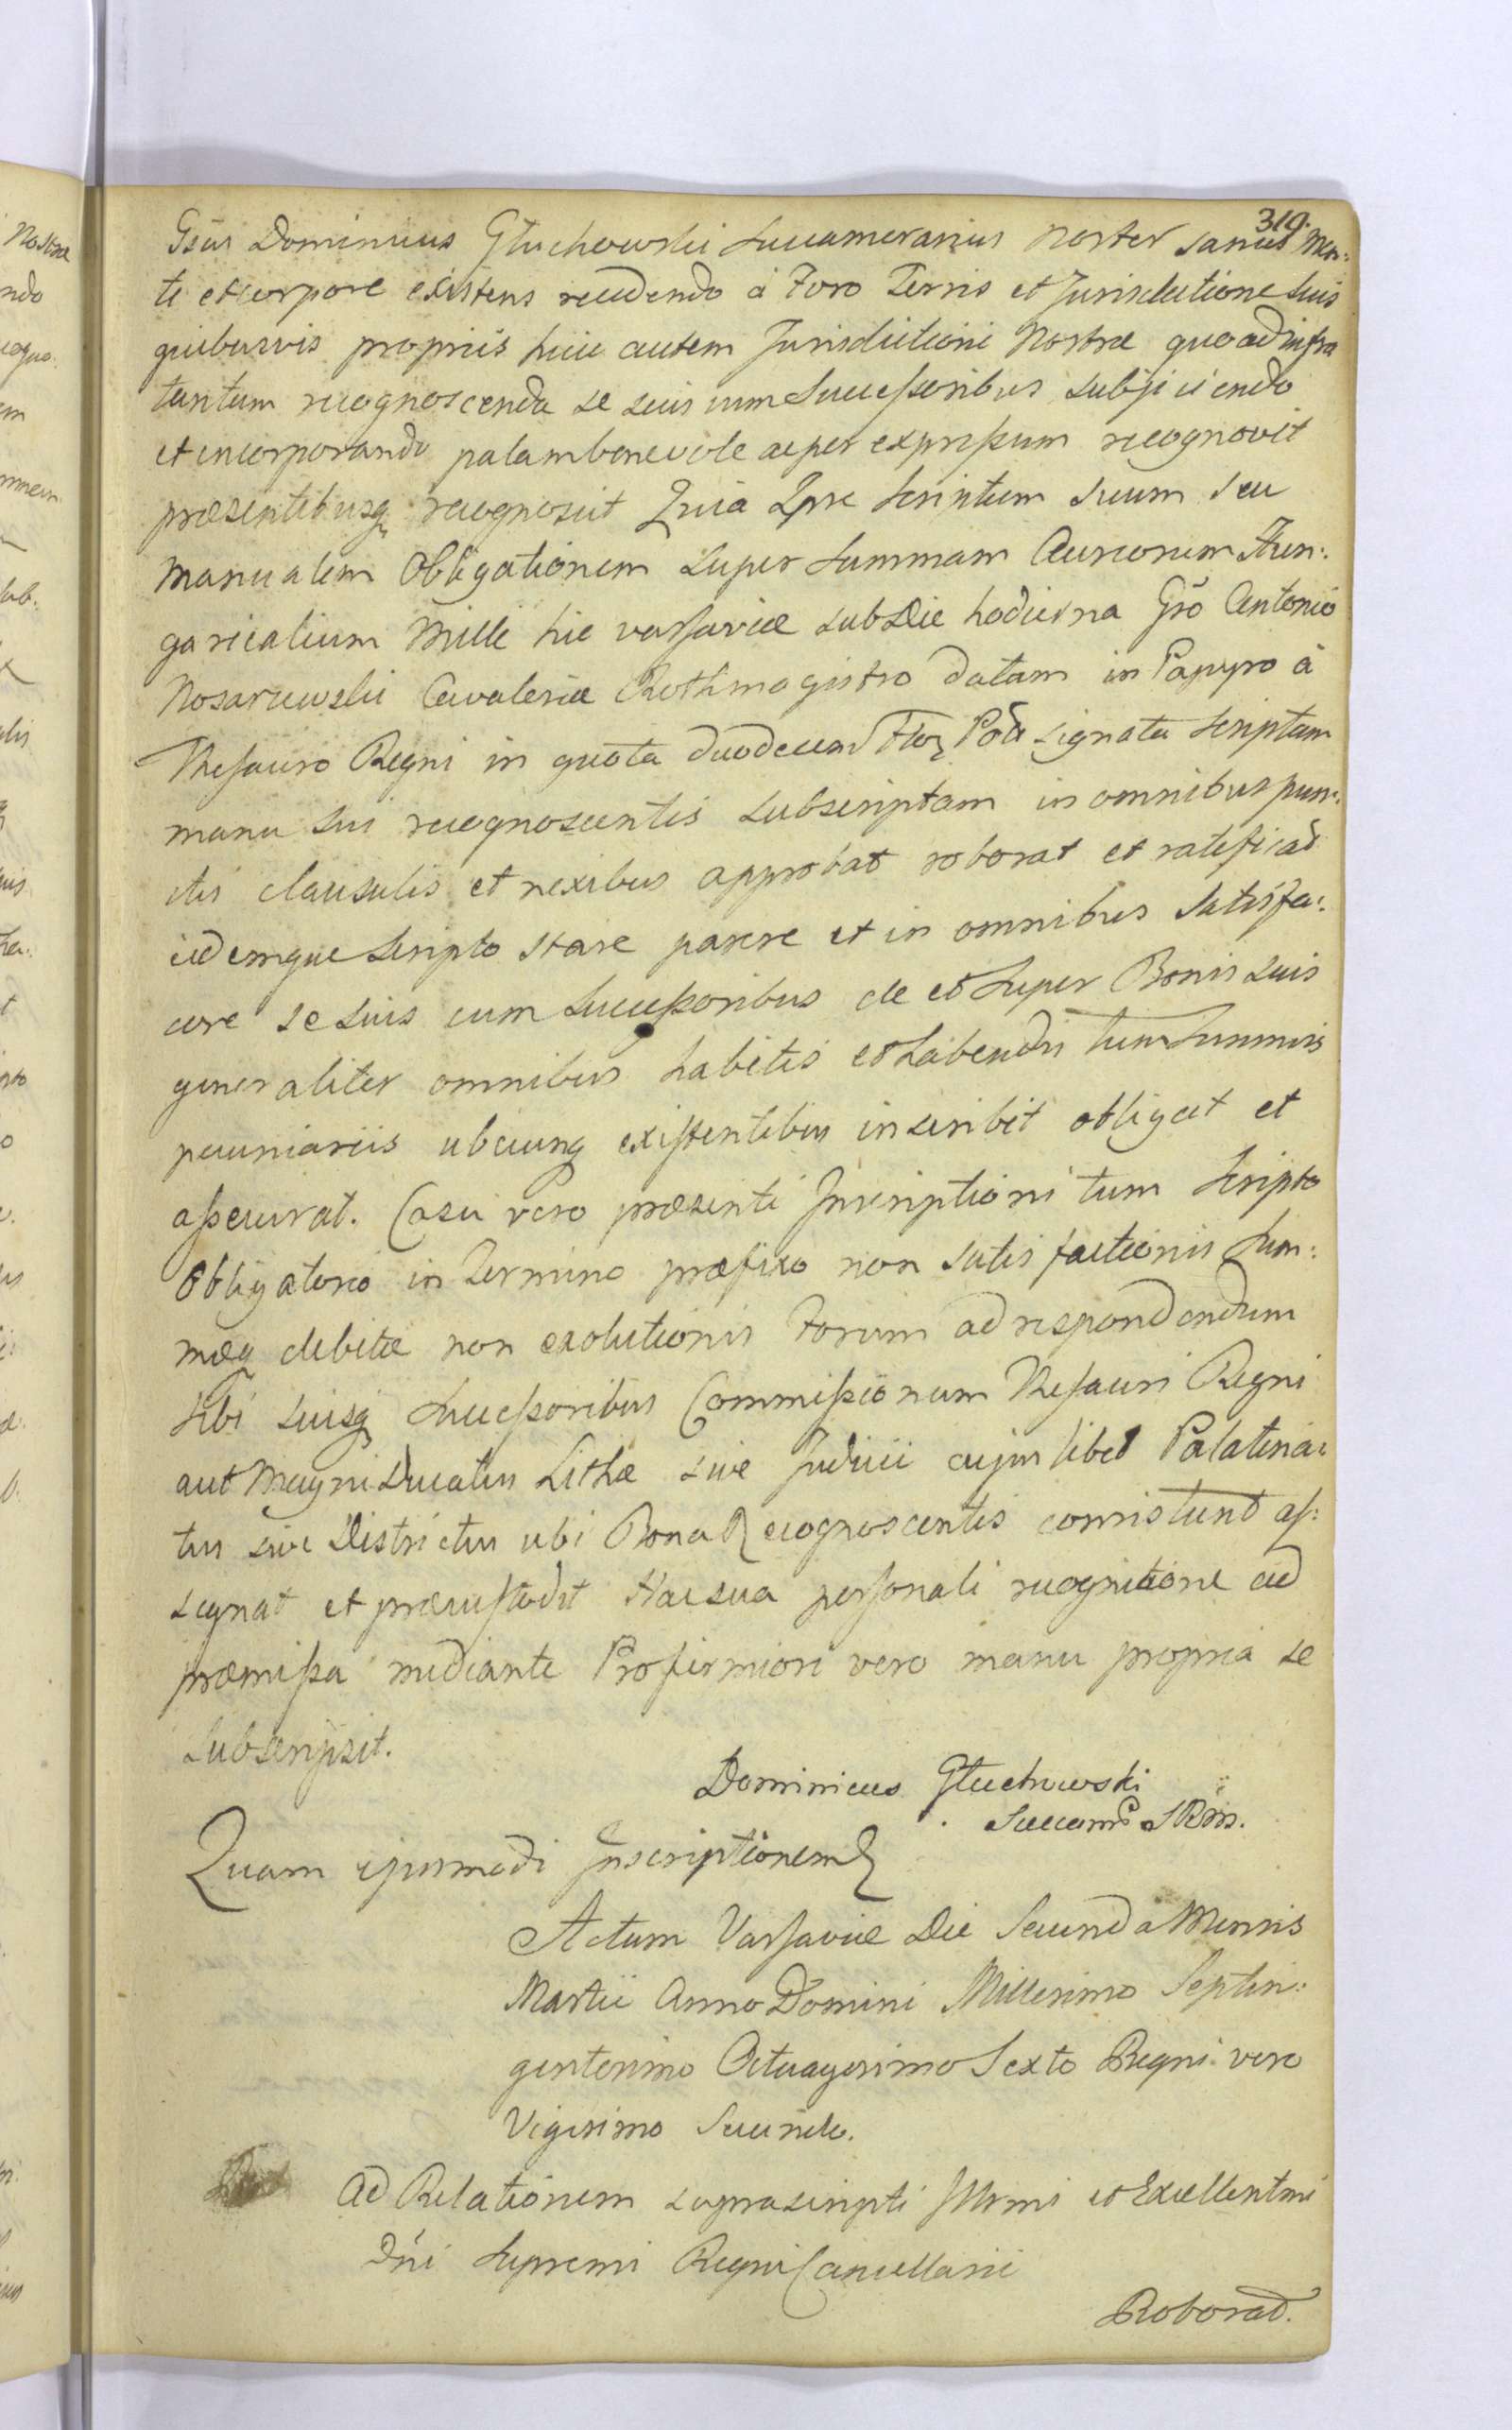 319.
Gsūs Dominicus Głuchowski Succamerarius Noster sanus Men:
te et corpore existens recedendo à Foro Terris et Jurisdictione suis
quibusvis propriis huic autem Jurisdictioni Nostræ quoad infra
tantum recognoscenda se suis cum Successoribus subjiciendo
et incorporando palam benevole ac per expressum recognovit
præsentibusq recognoscit Quia Ipse Scriptum suum seu
Manualem Obligationem super Summam Aureorum Hun:
garicalium Mille hic Varsaviæ sub Die hodierna Gsō Antonio
Nosarzewski Cavaleriæ Rothmagistro datam in Papyro à
Thesauro Regni in quota duodecim Flor Pol signata scriptam
manu sui recognoscentis subscriptam in omnibus pun:
ctis clausulis et nexibus approbat roborat et ratificat
eidemque Scripto stare parere et in omnibus satisfa:
cere se suis cum Successoribus de et super Bonis suis
generaliter omnibus habitis et habendis tum Summis
pecuniariis ubicunq existentibus inscribit obligat et
assecurat. Casu vero præsenti Inscriptioni tum Scripto
Obligatorio in Termino præfixo non satisfactionis Sum:
mæq debitæ non exolutionis Forum ad respondendum
sibi suisq Successoribus Commissionum Thesauri Regni
aut Magni Ducatus Lithæ sive Judicii cujus libet Palatina:
tus sive Districtus ubi Bona Recognoscentis consistunt as:
signat et præcustodit Hac sua personali recognitione ad
præmissa mediante Pro firmiori vero manu propria se
subscripsit.
Dominicus Głuchowski
Succam S R M.
Quam ejusmodi Inscriptionem
Actum Varsaviæ Die Secunda Mensis
Martii Anno Domini Millesimo Septin:
gentesimo Octuagesimo Sexto Regni vero
Vigesimo Secundo.
Ad Relationem suprascripti Illrmi et Excellentmi
Dńi Supremi Regni Cancellarii
Roborat.